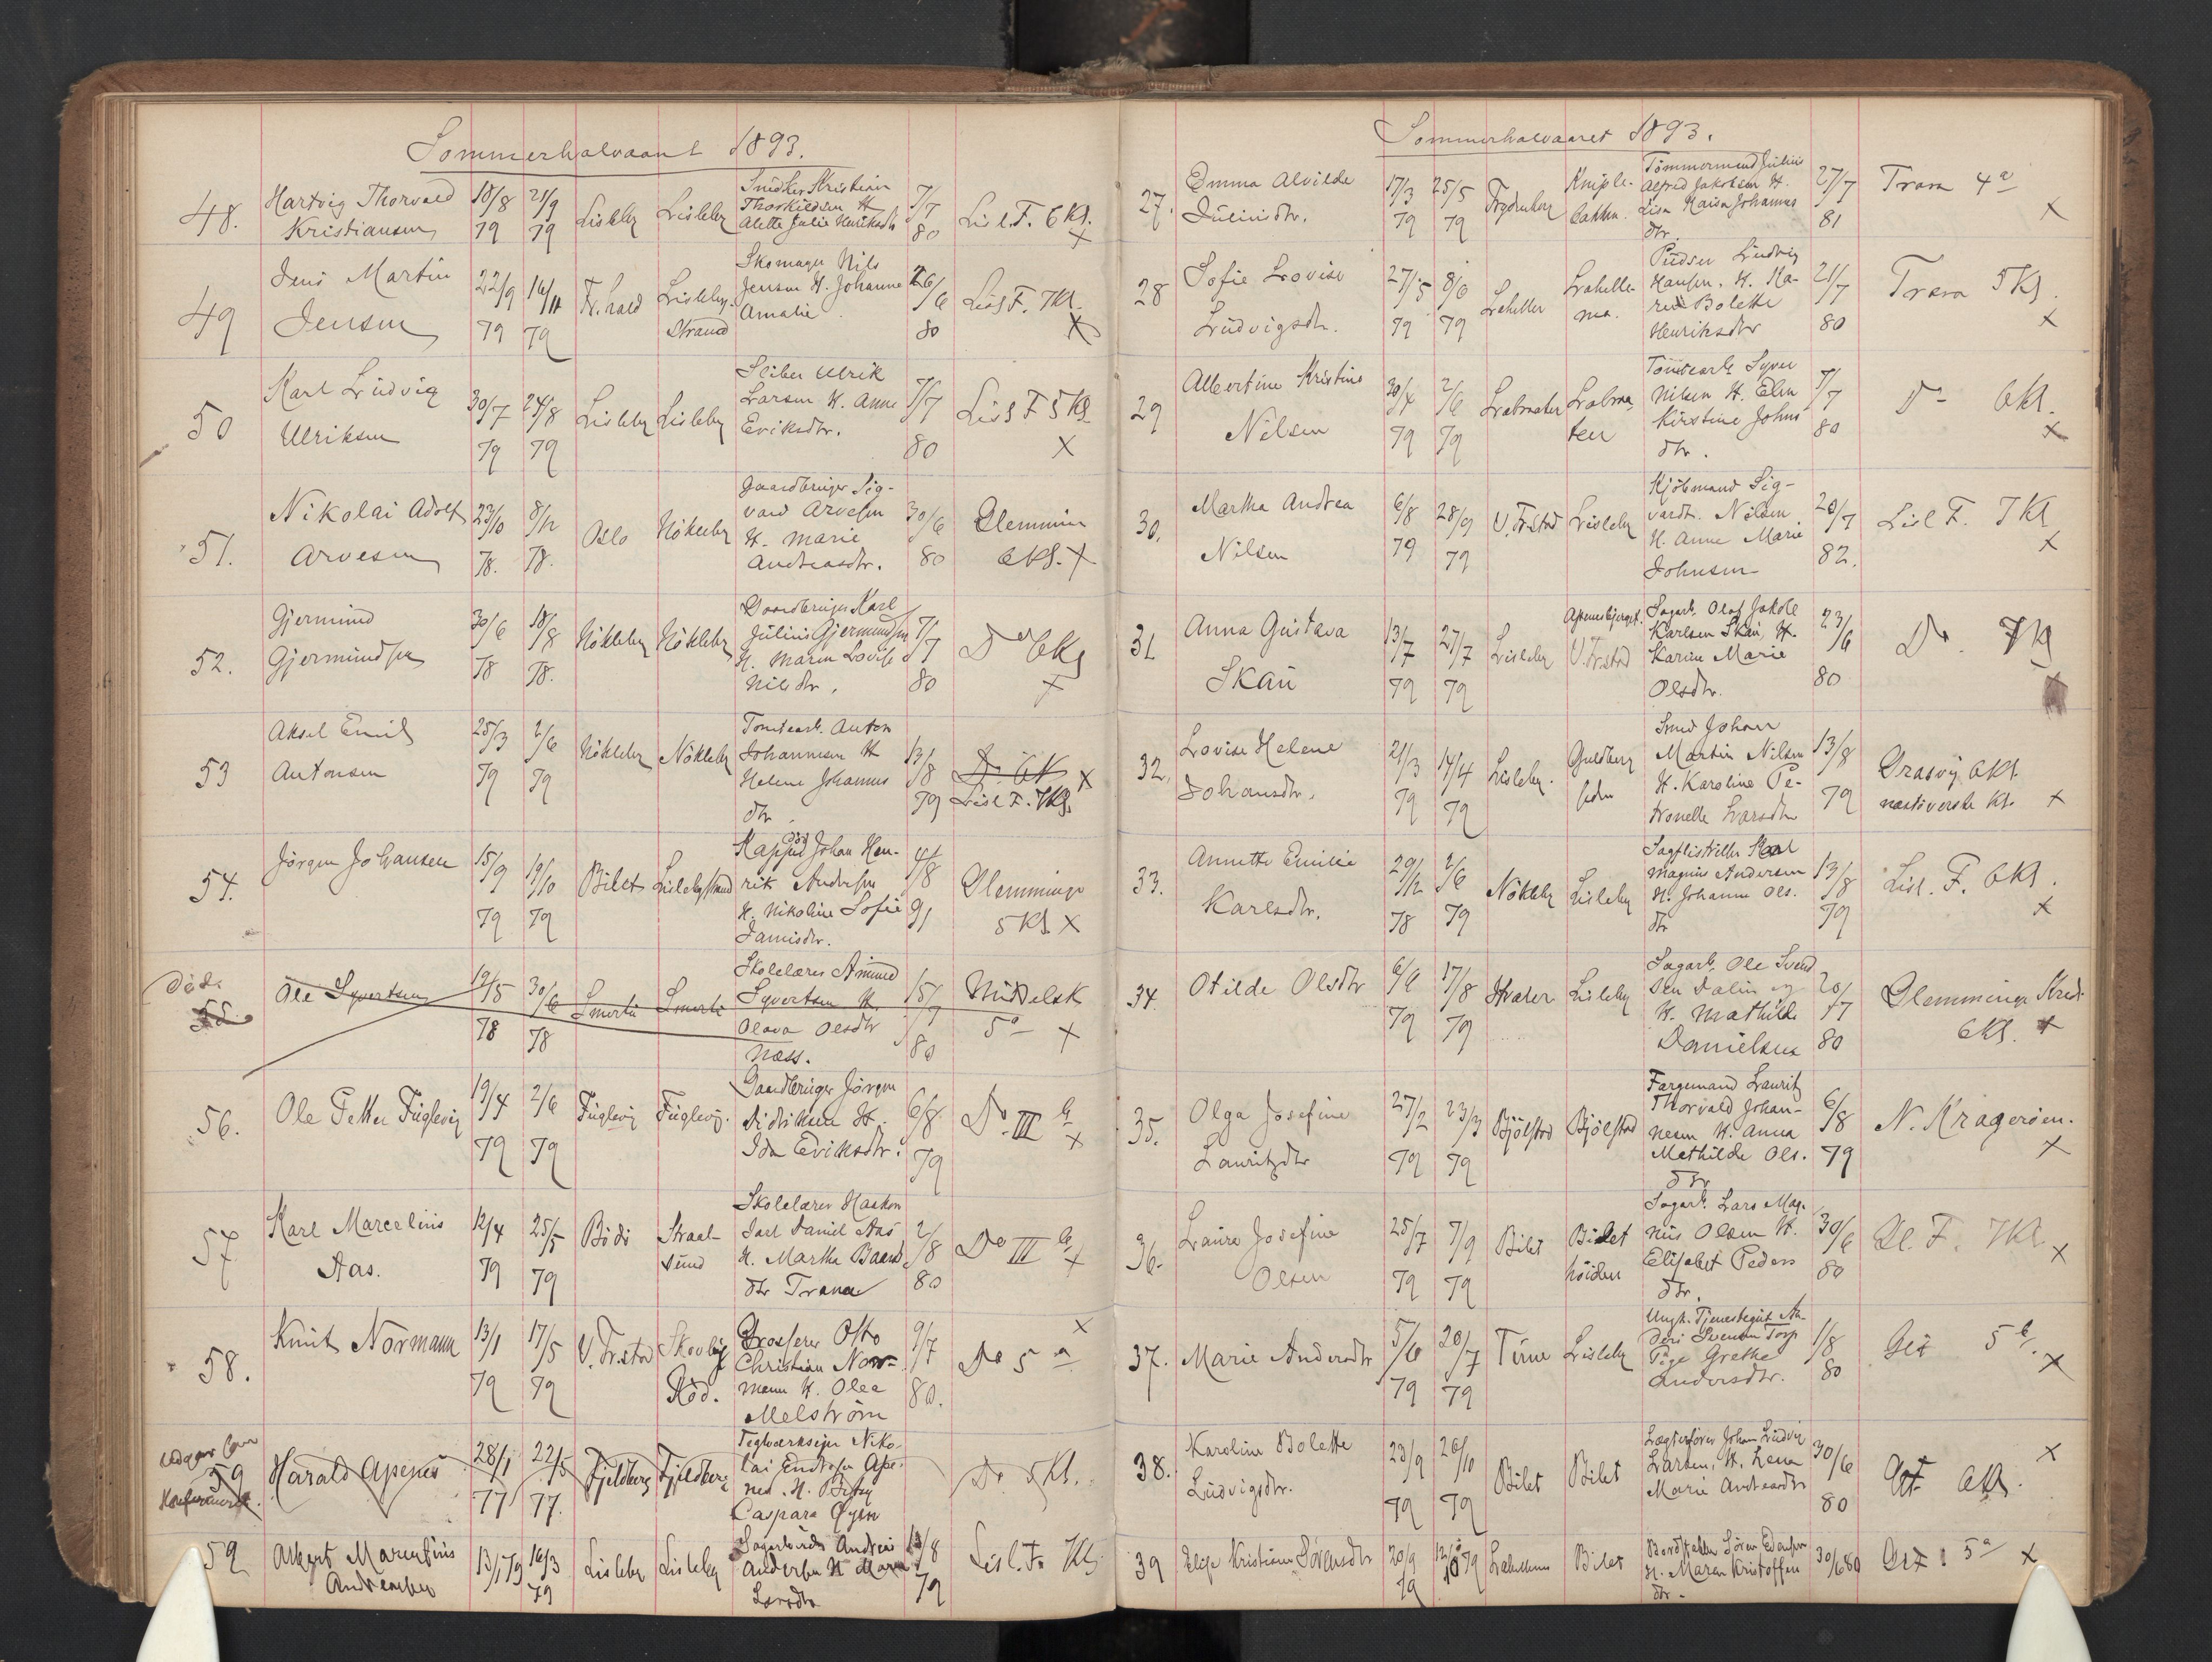 Sommerhalvaaret 1893.
48. Hartvig Thorvald Kristiansen 18/8 79 21/9 79 Lisleby Lisleby Snedker Kristian Thorkildsen H. Alette Julie Henriksdtr 7/7 80 Lisl. F. 6 Kl. X
49 Jens Martin Jensen 22/9 79 16/11 79 Fr.hald Lisleby Strand Skomager Nils Jensen H. Johanne Amalie 26/6 80 Lisl F. 7 Kl. X
50 Karl Ludvig Ulriksen 30/7 79 24/8 79 Lisleby Lisleby Sliber Ulrik Larsen H. Anne Eriksdtr. 7/7 80 Lisl F 5 Kl X
51. Nikolai Adolf Arvesen 23/10 78. 8/12 78. Oslo Nökleby Gaardbruger Sigvard Arvesen H. Marie Andreasdtr. 30/6 80 Glemminge 6 Kl. X
52. Gjermund Gjermundsen 30/6 78 18/8 78. Nökleby Nökleby Gaardbruger Karl Julius Gjermundsen H. Maren Lovise Nilsdtr. 7/7 80 Do 6 Kl X
53 Aksel Emil Antonsen 25/3 79 2/6 79 Nökleby Nökleby Tomtearb. Anton Johannesen H Helene Johannesdtr. 13/8 79 Do 6 Kl X Lisl F. 7 Kl.
54. Jörgen Johansen 15/9 79 19/10 79 Bilet Lisleby strand Johan Henrik Andersen H. Nikoline Sofie 4/8 91 Glemminge 5 Kl X
död. 55. Ole Syvertsen 19/5 78 30/6 78 Smertu Smertu Skolelærer Amund Syvertsen H. Olava Olsdtr Næss. 15/7 80 Middelsk 5a X
56. Ole Petter Fuglevig 19/4 79 2/6 79 Fuglevig Fuglevig. Gaardbruger Jörgen Didriksen H. Ida Eriksdtr. 6/8 79 Do III b X
57 Karl Marcelius Aas. 12/4 79 25/5 79 Bödö Straalsund Skolelærer Haakon Joel Daniel Aas H. Martha Baardsdtr Trana 2/8 80 Do III b X
58. Knut Normann 13/1 79 17/5 79 V. Fr.stad Skovby Röd. Grosserer Otto Christian Normann H. Olea Melström 9/7 80. Do 5 a X
59 Konfirmeret. Harald Apenes 28/1 77 22/5 77. Fjeldberg Fjeldberg Teglværkseier Nikolai Endresen Apenes. H. Betsy Caspara Do 5 Kl.
59 Albert Marentius Andreassen 13/1 79 16/3 79 Lisleby Lisleby Andreas Andersen H Maren Larsdtr 13/8 79 Lisl. F. 7 Kl
Sommerhalvaaret 1893.
27. Emma Alvilde Juliusdtr. 17/3 79 25/5 79 Frydenberg Kniplebakken. Tömmermand Julius Alfred Jakobsen H. Lisa Kaisa Johannesdtr 27/7 81 Trara 4a X
28 Sofie Lovise Ludvigsdtr. 27/5 79 8/6 79 Lahellen Lahellemo. Pudser Ludvig Hansen. H. Karen Bolette Henriksdtr 21/7 80 Trara 5 Kl. X
29 Albertine Kristine Nilsen 30/4 79 2/6 79 Labraaten Labraaten Tomtearb. Syver Nilsen H. Elen Kirstine Johnsdtr. 7/7 80 Do 6 Kl. X
30. Martha Andrea Nilsen 6/8 79 28/9 79 V. Fr.stad Lisleby Kjöbmand Sigvardt. Nilsen H. Anne Marie Johnsen 20/7 82. Lisl F. 7 Kl X
31 Anna Gustava Skau 13/7 79 27/7 79 Lisleby Apenesbjerget. V. Fr.stad Sagarb. Olaf Jakob Karlsen Skau, H. Karine Marie Olsdtr. 23/6 80 Do. 7 Kl X
32. Lovise Helene Johansdtr. 21/3 79 14/4 79 Lisleby. Guldbergsiden Smed Johan Martin Nilsen H. Karoline Petronelle Larsdtr 13/8 79 Græsvig 6 Kl næstöverste Kl. X
33. Annette Emilie Karlsdtr. 29/12 78 2/6 79 Nökleby Lisleby Karl Magnus Andersen H. Johanne Olsdtr 13/8 79 Lisl. F. 6 Kl. X
34. Otilde Olsdtr 6/6 79 17/8 79 Hvaler Lisleby Sagarb. Ole Svendsen Dalin og H. Mathilde Danielsen 20/7 80 Glemminge Kreds 6 Kl. X
35. Olga Josefine Lauritzdtr 27/2 79 23/3 79 Bjölstad Bjölstad Færgemand Lauritz Thorvald Johannesen H. Anna Mathilde Olsdtr 6/8 79 N. Krageröen. X
36. Laura Josefine Olsen 25/7 79 7/9 79 Bilet Bilet höiden Sagarb. Lars Magnus Olsen H. Elisabet Pedersdtr. 30/6 80 Gl. F. 7 Kl X
37. Marie Andersdtr 5/6 79 20/7 79 Tune Lisleby Ungk. Tjenestegut Anders Svensen Torp Pige Grethe Andersdtr. 1/8 80 5 b. X
38. Karoline Bolette Ludvigsdtr. 23/9 79 26/10 79 Bilet Bilet Lægterfører Johan Ludvig Larsen, H. Lena Marie Andreasdtr 30/6 80 6 Kl. X
39 Kristiane Sörensdtr 20/9 79 12/10 79 Lahellemo Bilet Sören H. Maren Kristoffersdtr. 30/6 80 5a X